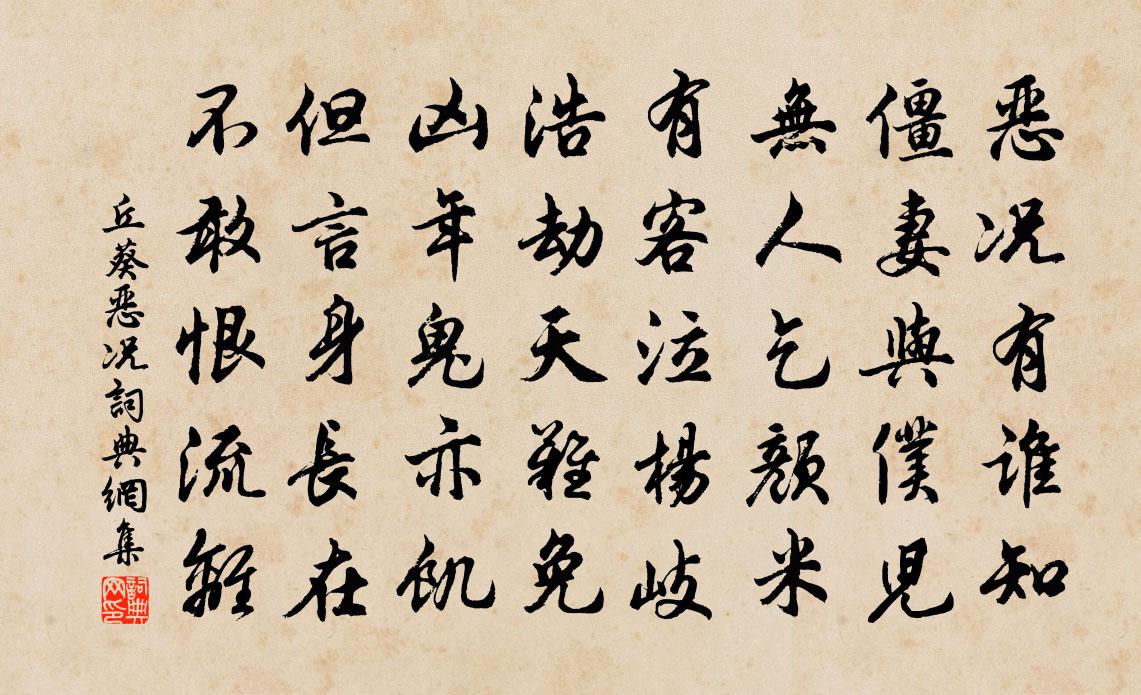 恶况有谁知
僵妻與僕兒
無人乞顏米
有客泣楊岐
浩劫天難免
凶年鬼亦飢
但言身長在
不敢恨流離
丘葵恶况詞典網集
詞典网印